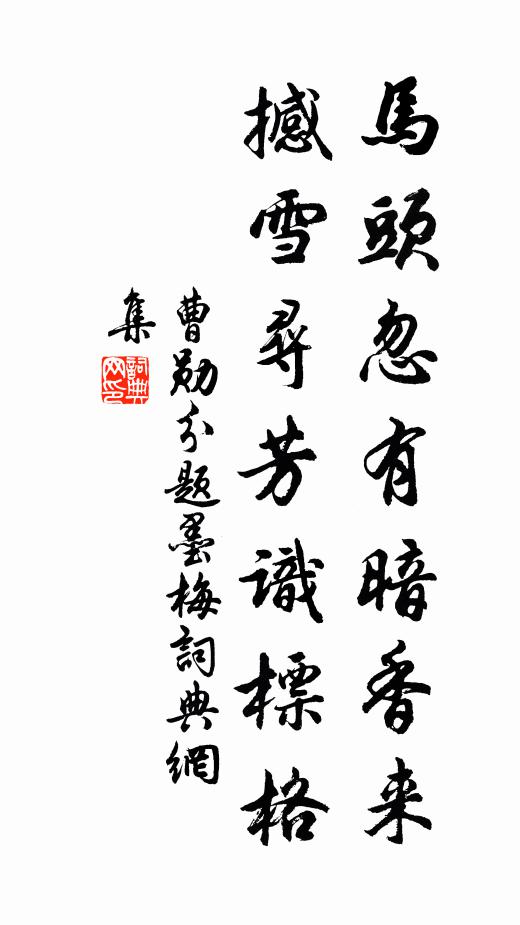 馬頭忽有暗香来
撼雪尋芳識標格
曹勛分題墨梅詞典網
集
詞典
网印